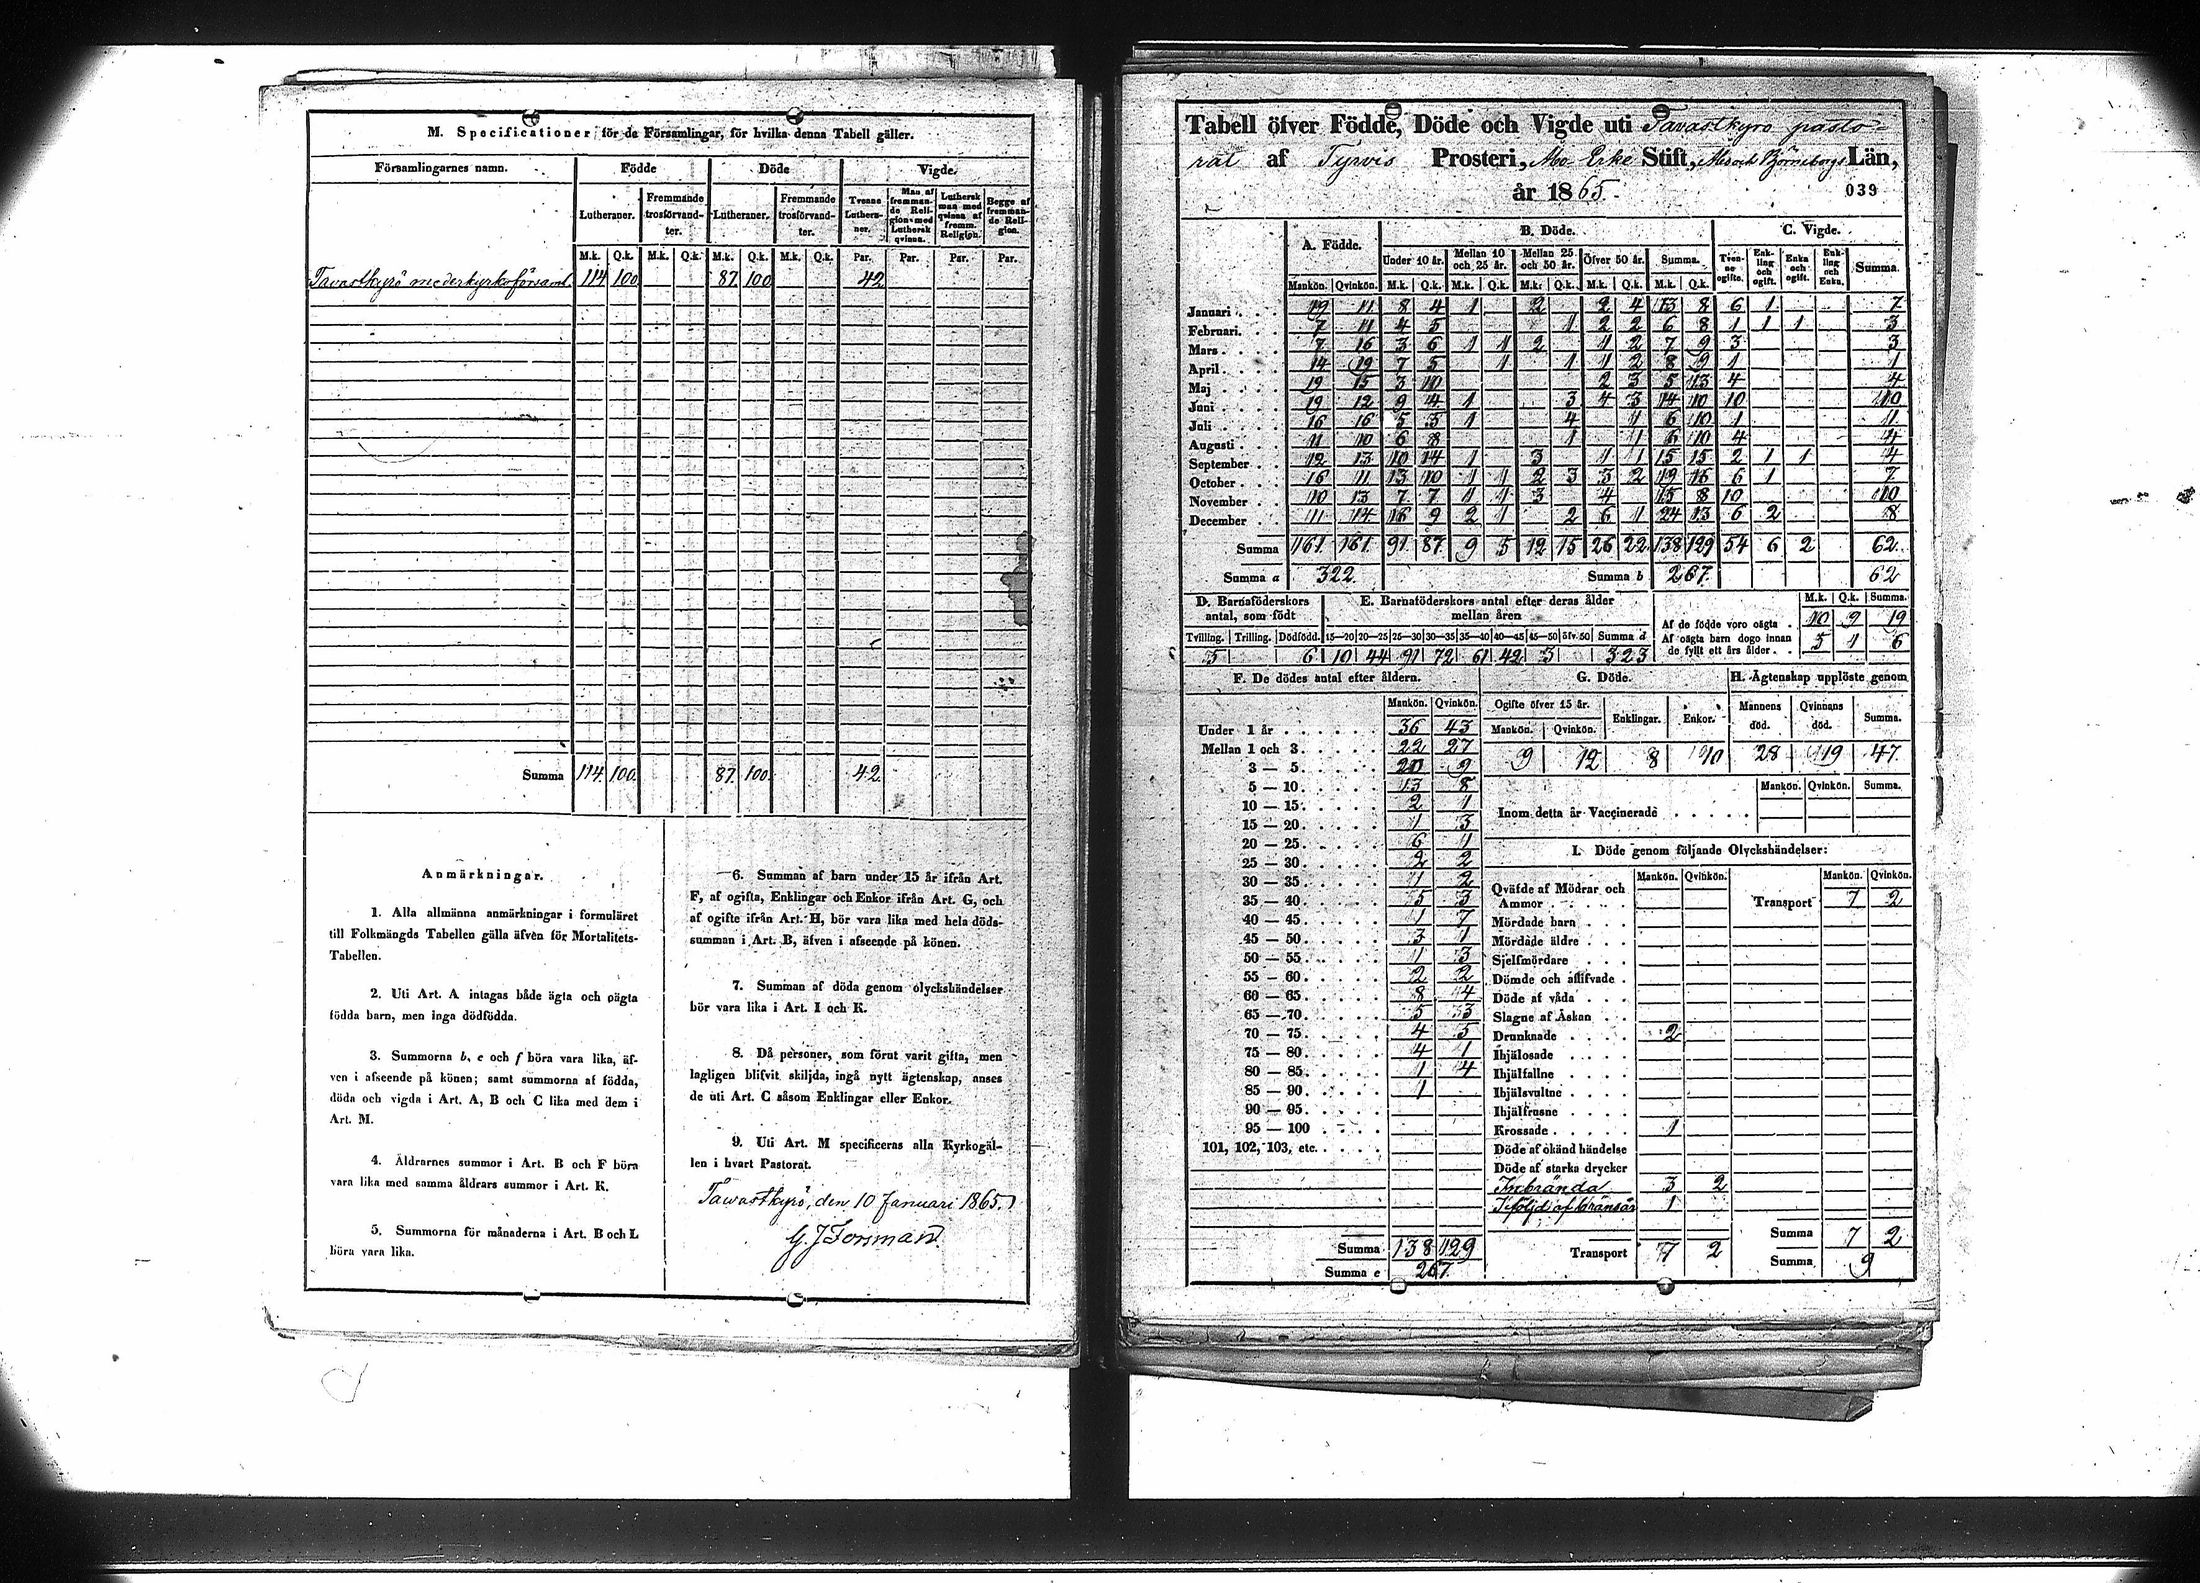 M. Specificationer för de Församlingar, för hvilka denna Tabell gäller.
Församlingarnes namn. Födde Döde Vigde.
Lutheraner. Fremmande trosförvandter. Lutheraner. Fremmande trosförvandter. Tvenne Lutheraner. Man af fremmande Religion med Luthersk qvinna. Luthersk man med qvinna af fremm. Religion. Begge af fremmande Religion.
M.k. Q.k. M.k. Q.k. M.k. Q.k. M.k. Q.k. Par. Par. Par. Par.
Tavastkyrö moderkyrkoförsaml. 114 100 87 100 42
Summa 114. 100. 87. 100. 42
Anmärkningar.
1. Alla allmänna anmärkningar i formuläret
till Folkmängds Tabellen gälla äfven för Mortalitets-
Tabellen.
2. Uti Art. A intagas både ägta och oägta
födda barn, men inga dödfödda.
3. Summorna b, e och f böra vara lika, äf-
ven i afseende på könen; samt summorna af födda,
döda och vigda i Art. A, B och C lika med dem i
Art. M.
4. Åldrarnes summor i Art. B och F böra
vara lika med samma åldrars summor i Art. K.
5. Summorna för månaderna i Art. B och L
böra vara lika.
6. Summan af barn under 15 år ifrån Art.
F, af ogifta, Enklingar och Enkor ifrån Art. G, och
af ogifte ifrån Art. H, bör vara lika med hela döds-
summan i Art. B, äfven i afseende på könen.
7. Summan af döda genom olyckshändelser
bör vara lika i Art. I och K.
8. Då personer, som förut varit gifta, men
lagligen blifvit skiljda, ingå nytt ägtenskap, anses
de uti Art. C såsom Enklingar eller Enkor.
9. Uti Art. M specificeras alla Kyrkogäl-
len i hvart Pastorat.
Tawastkyrö, den 10 Januari 1865.
G. J. Forsman.
Tabell öfver Födde, Döde och Vigde uti Tavastkyro pasto-
rat af Tyrvis Prosteri, Åbo Erke Stift, Åbo och Björneborgs Län,
år 1865.
039
A. Födde. B. Döde. C. Vigde.
Under 10 år. Mellan 10 och 25 år. Mellan 25 och 50 år. Öfver 50 år. Summa. Tvenne ogifte. Enkling och ogift. Enka och ogift. Enkling och Enka. Summa.
Mankön. Qvinkön. M.k. Q.k. M.k. Q.k. M.k. Q.k. M.k. Q.k. M.k. Q.k.
Januari 19 11 8 4 1 2 2 4 13 8 6 1 7
Februari 7 11 4 5 1 2 2 6 8 1 1 1 3
Mars 7 16 3 6 1 1 2 1 2 7 9 3 3
April 14 19 7 5 1 1 1 2 8 9 1 1
Maj 19 15 3 10 2 3 5 13 4 4
Juni 19 12 9 4 1 3 4 3 14 10 10 10
Juli 16 16 5 5 1 4 1 6 10 1 1
Augusti 11 10 6 8 1 1 6 10 4 4
September 12 13 10 14 1 3 1 1 15 15 2 1 1 4
October 16 11 13 10 1 1 2 3 3 2 19 16 6 1 7
November 10 13 7 7 1 1 3 4 15 8 10 10
December 11 14 16 9 2 1 2 6 1 24 13 6 2 8
Summa 161. 161. 91. 87. 9 5 12 15 26 22. 138 129 54 6 2 62.
Summa a 322. Summa b 267. 62
D. Barnaföderskors antal, som födt
E. Barnaföderskors antal efter deras ålder mellan åren
M.k. Q.k. Summa.
Af de födde voro oägta 10 9 19
Af oägta barn dogo innan de fyllt ett års ålder 5 1 6
Tvilling. Trilling. Dödfödd. 15—20 20—25 25—30 30—35 35—40 40—45 45—50 öfv. 50 Summa d
5 6 10 44 91 72 61 42 3 323
F. De dödes antal efter åldern.
Mankön. Qvinkön.
Under 1 år 36 43
Mellan 1 och 3 22 27
3 — 5 20 9
5 — 10 13 8
10 — 15 2 1
15 — 20 1 3
20 — 25 6 1
25 — 30 2 2
30 — 35 1 2
35 — 40 5 3
40 — 45 1 7
45 — 50 3 1
50 — 55 1 3
55 — 60 2 2
60 — 65 8 4
65 — 70 5 3
70 — 75 4 5
75 — 80 4 1
80 — 85 1 4
85 — 90 1
90 — 95
95 — 100
101, 102, 103, etc.
Summa 138 129
Summa e 267.
G. Döde.
Ogifte öfver 15 år. Enklingar. Enkor.
Mankön. Qvinkön.
9 12 8 10
H. Ägtenskap upplöste genom
Mannens död. Qvinnans död. Summa.
28 19 47
Mankön. Qvinkön. Summa.
Inom detta år Vaccinerade
I. Döde genom följande Olyckshändelser:
Mankön. Qvinkön. Mankön. Qvinkön.
Qväfde af Mödrar och Ammor
Transport 7 2
Mördade barn
Mördade äldre
Sjelfmördare
Dömde och aflifvade
Döde af våda
Slagne af Åskan
Drunknade 2
Ihjälosade
Ihjälfallne
Ihjälsvultne
Ihjälfrusne
Krossade 1
Döde af okänd händelse
Döde af starka drycker
Inbrända 3 2
I följd af bränsår 1
Summa 7 2
Transport 7 2
Summa 9